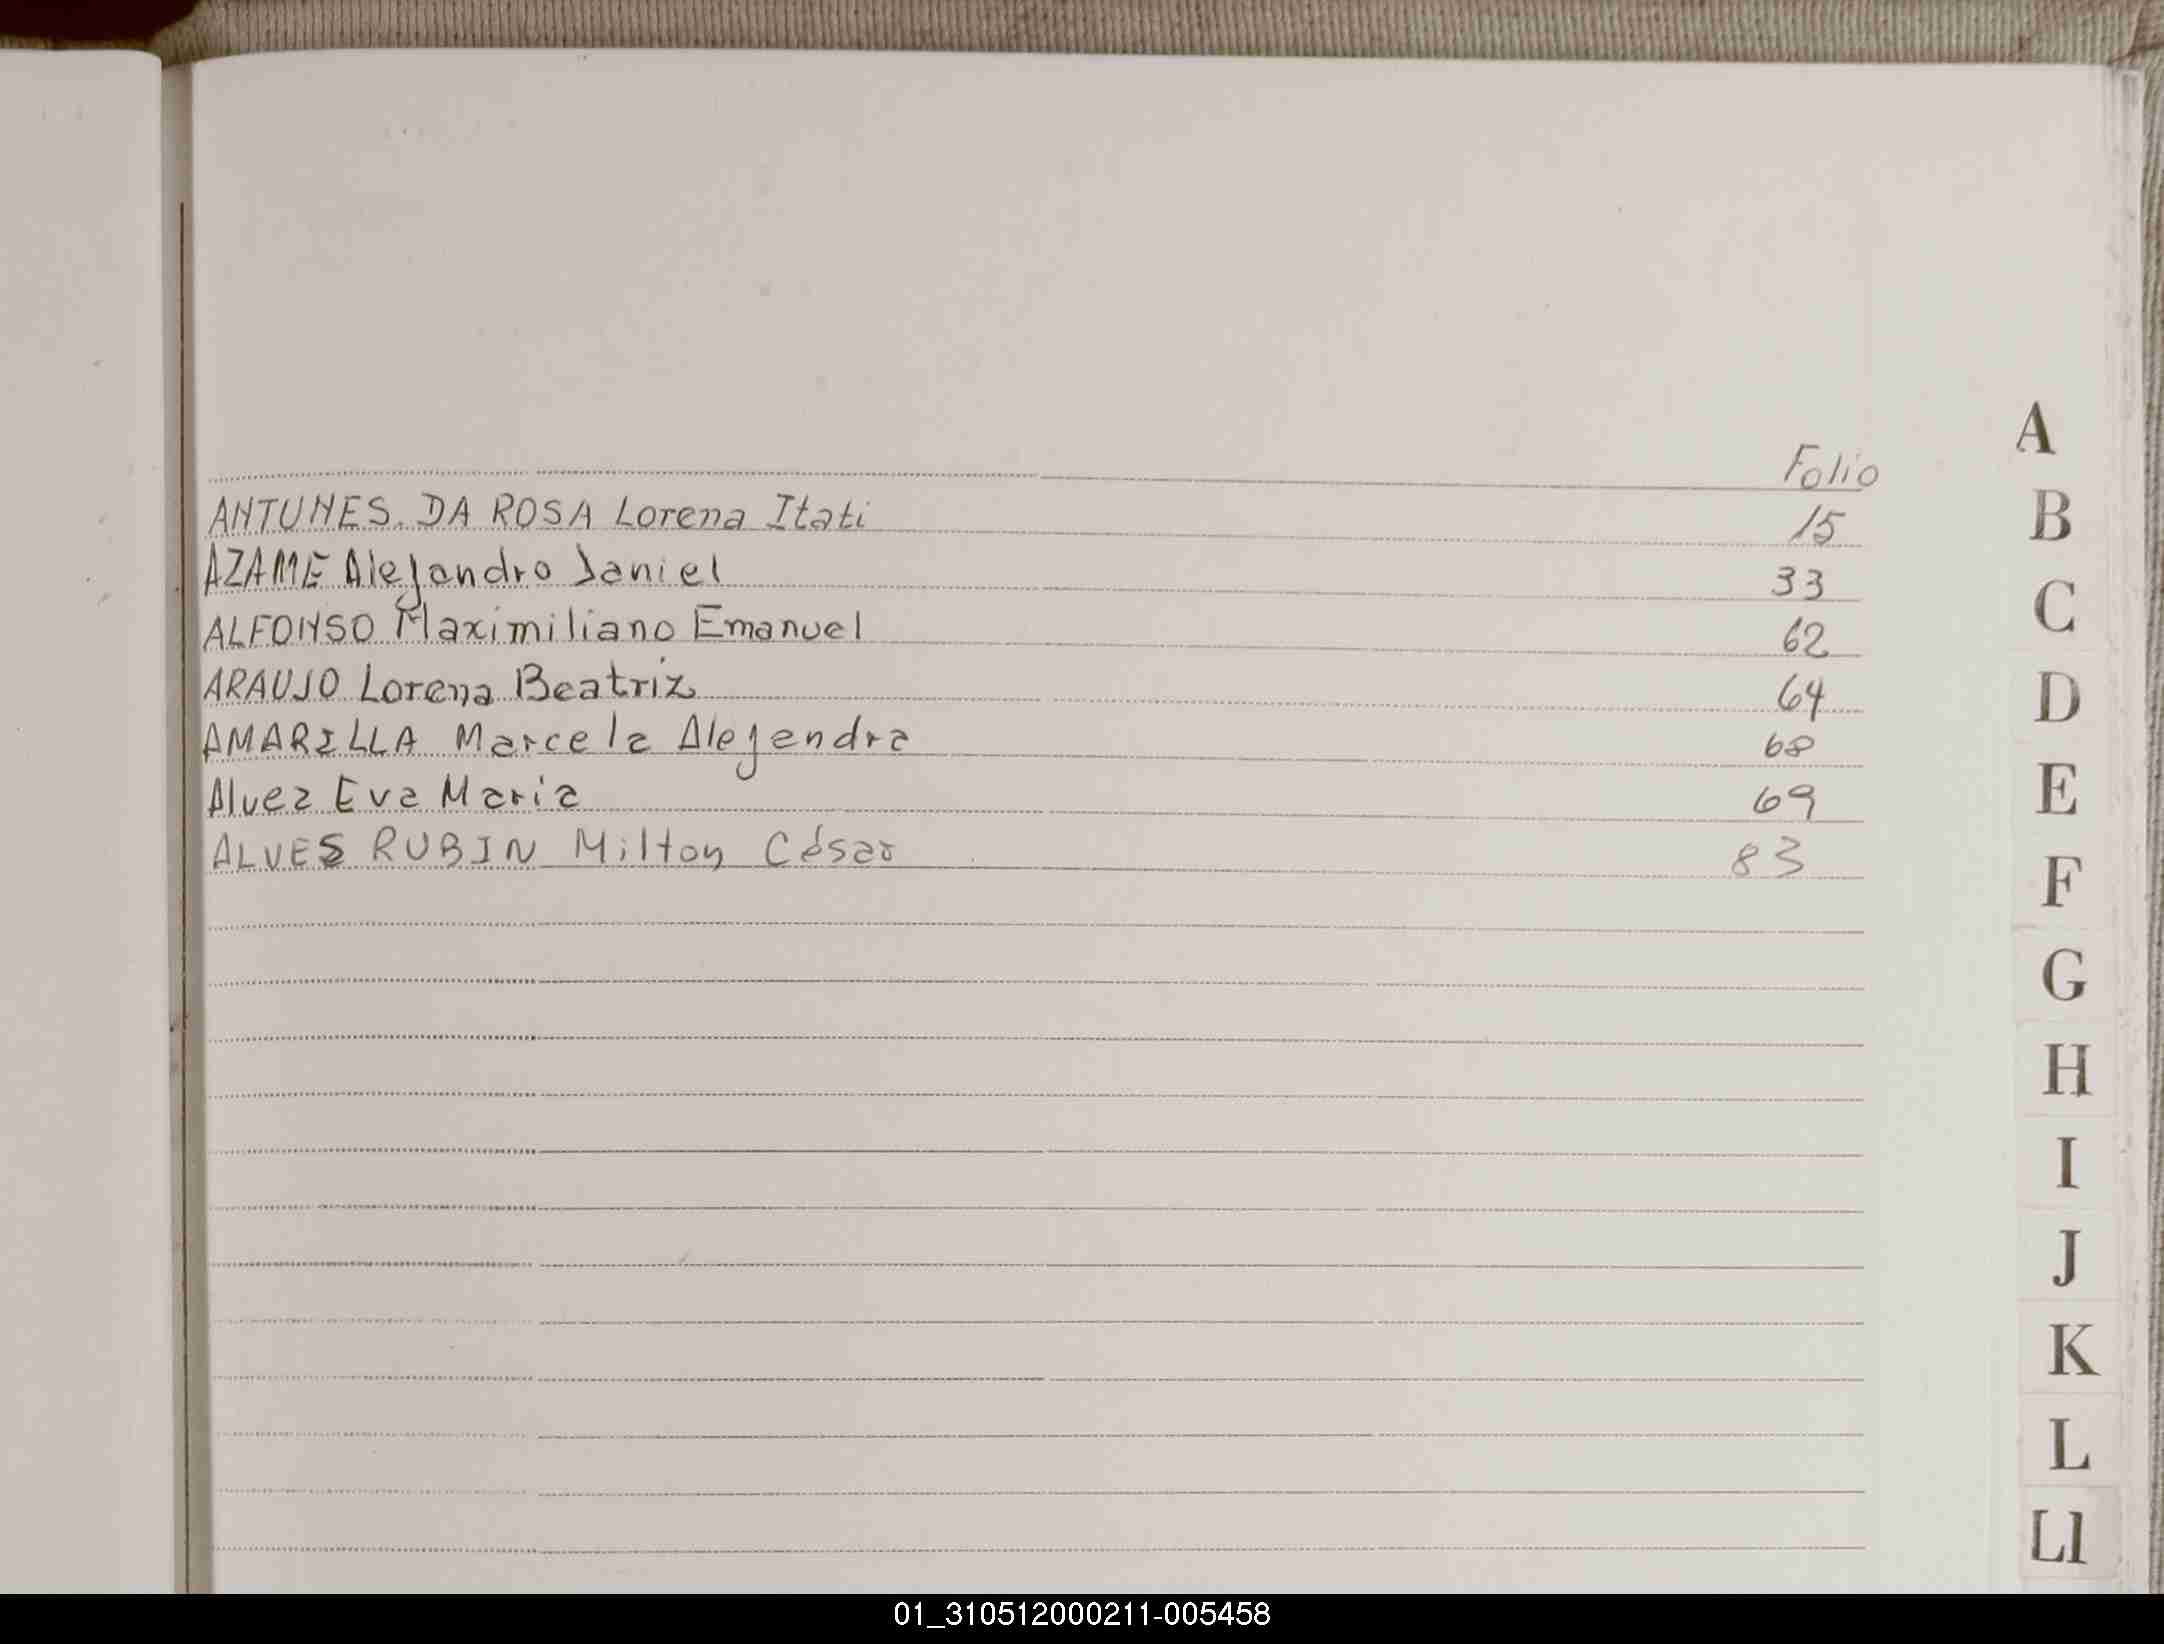 Folio
ANTUNES DA ROSA Lorena Itati 15
AZAME Alejandro Daniel 33
ALFONSO Maximiliano Emanuel 62
ARAUJO Lorena Beatriz 64
AMARILLA Marcela Alejandra 68
Alvez Eva Maria 69
ALVES RUBIN Milton César 83
A
B
C
D
E
F
G
H
I
J
K
L
Ll
01_310512000211-005458